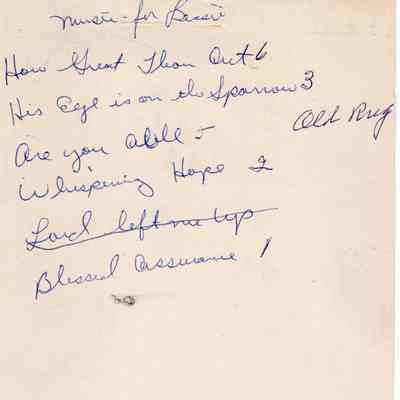 Music for Bessie
How Great Thou Art 6
His Eye is on the Sparrow 3
Old Rug
Are you able 5
Whispering Hope 2
Lord left me up
Blessed assurance 1